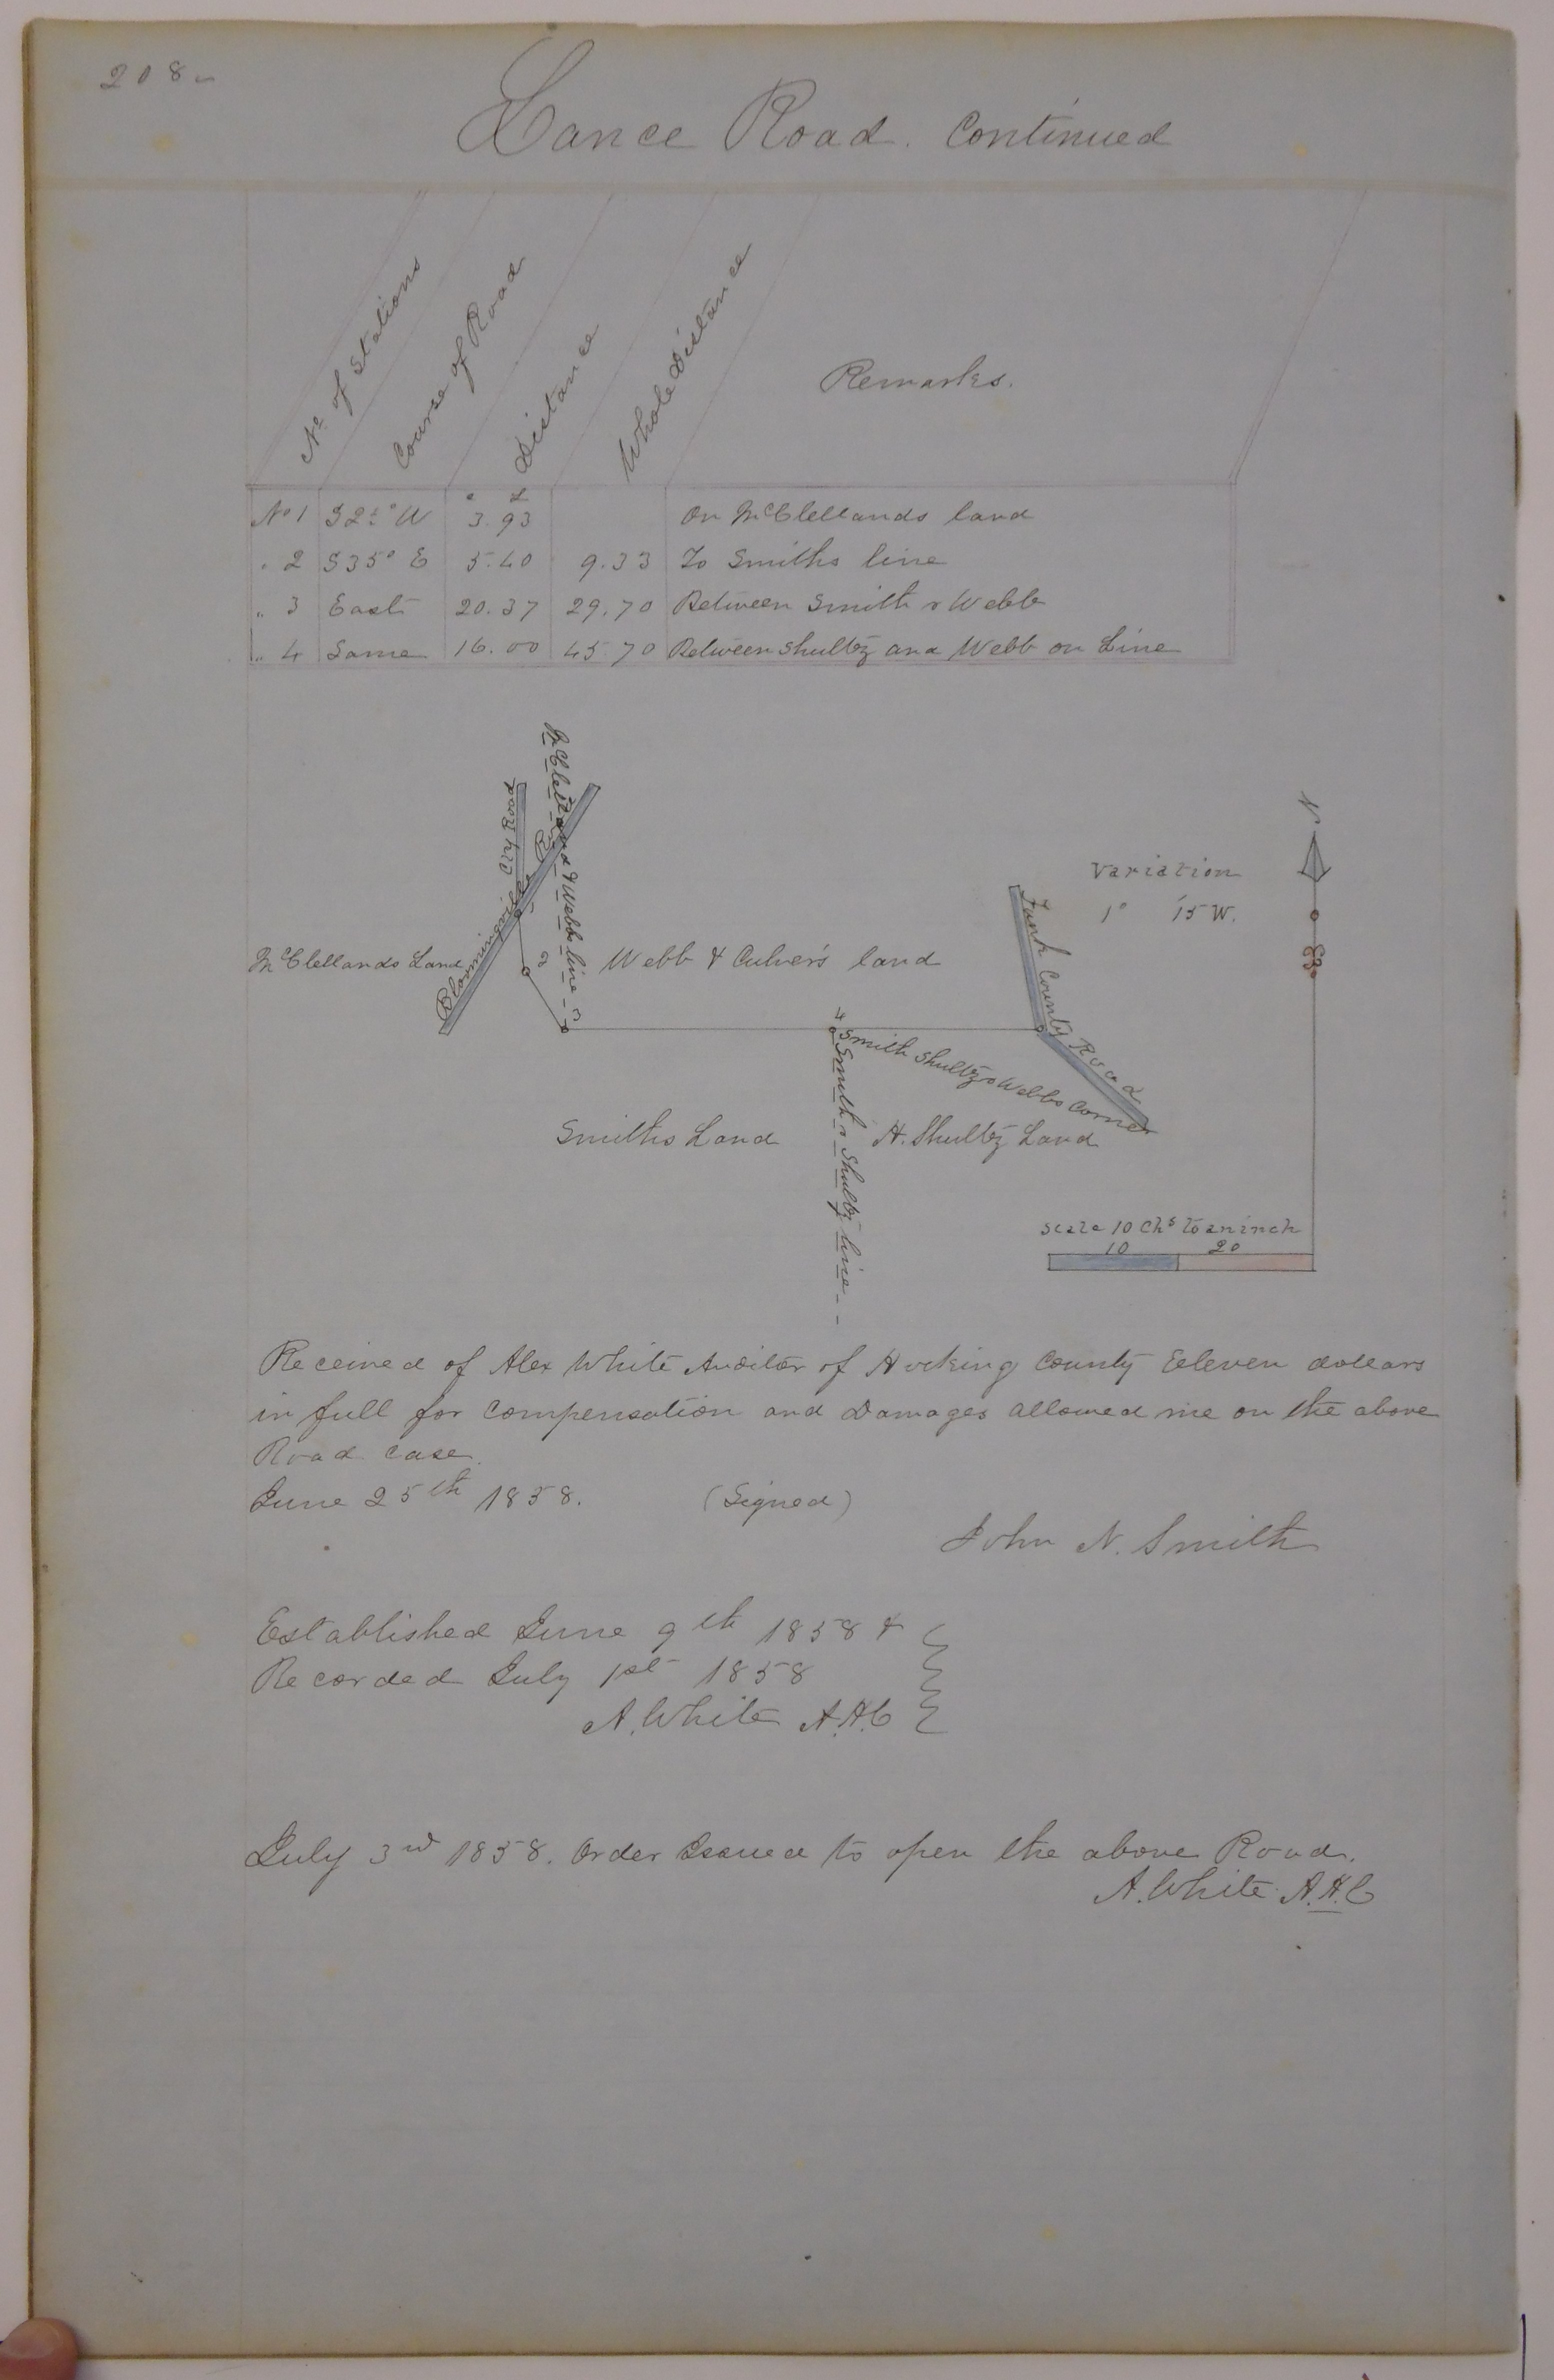 208
Lance Road. Continued
No. of Stations
Course of Road
Distance
Whole Distance
Remarks.
c L
No 1 S 2½° W 3.93 On McClellands land
" 2 S 35° E 5.40 9.33 To Smiths line
" 3 East 20.37 29.70 Between Smith & Webb
" 4 Same 16.00 45.70 Between Shultz and Webb on Line
McClelland & Webbs line
Old Road
Bloomingville
N
Variation
1° 15 W.
County Road
McClellands Land
2
Webb & Culver's land
3
4
Smith Shultz & Webbs Corner
Smith & Shultz line
Smiths Land
H. Shultz Land
Scale 10 Chs to an inch
10 20
Received of Alex White Auditor of Hocking County Eleven dollars
in full for Compensation and Damages allowed me on the above
Road Case.
June 25th 1858. (Signed)
John N. Smith
Established June 9th 1858 &
Recorded July 1st 1858
A. White A.H.C
July 3rd 1858. Order Issued to open the above Road.
A. White A.H.C